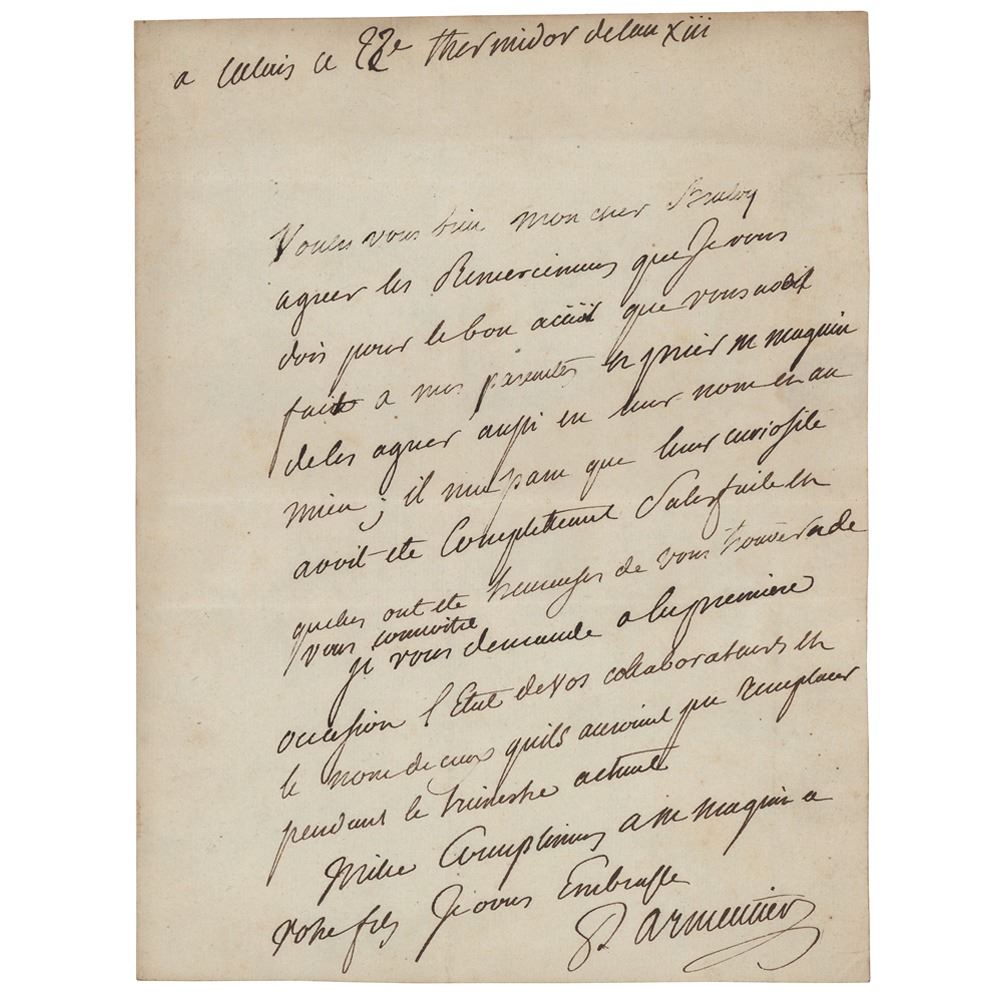 a Calais ce 22e thermidor de lan xiii
Voulez vous bien mon cher
agreer les Remerciemens que Je vous
dois pour le bon accueil que vous avez
fait a mes parentes et prier m maquin
de les agreer aussi en leur nom et au
mien ; il me paru que leur curiosité
avoit ete Completement Satisfaite et
quelles ont ete heureuses de vous trouver et de
vous connoitre
je vous demande a la premiere
occasion l'Etat de vos collaborateurs et
le nom de ceux quils auroient pu remplacer
pendant le trimestre actuel
Mille Complimens a m maquin a
votre fils Je vous Embrasse
Parmentier